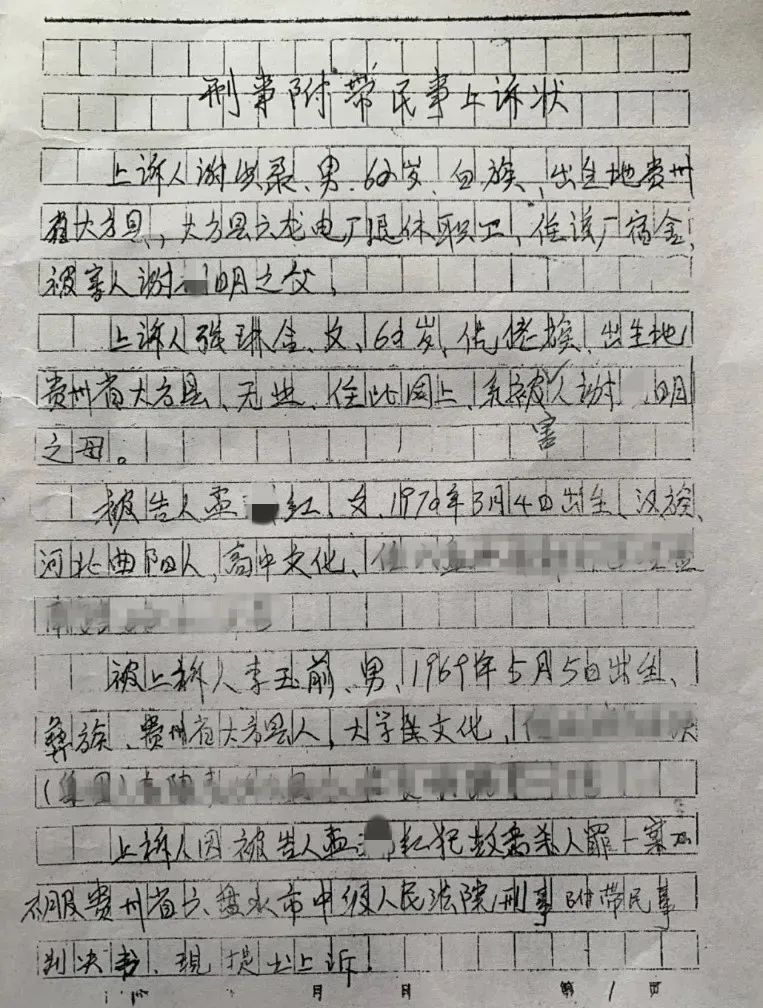 刑事附带民事上诉状
上诉人谢洪录、男、62岁、白族、出生地贵州
省大方县,、大方县六龙电厂退休职工、住该厂宿舍、
被害人谢 明之父,
上诉人张琳仝、女、62岁、仡佬族、出生地
贵州省大方县、无业、住址同上、系被害人谢 明
之母。
被告人孟 红、女、1970年3月4日出生、汉族、
河北曲阳人,高中文化、住
被上诉人李玉前、男、1969年5月5日出生、
彝族、贵州省大方县人,大学生文化,住
(集团)
上诉人因被告人孟 红犯故意杀人罪一案不
服贵州省六盘水市中级人民法院刑事附带民事
判决书、现提出上诉!
月 日 第1页